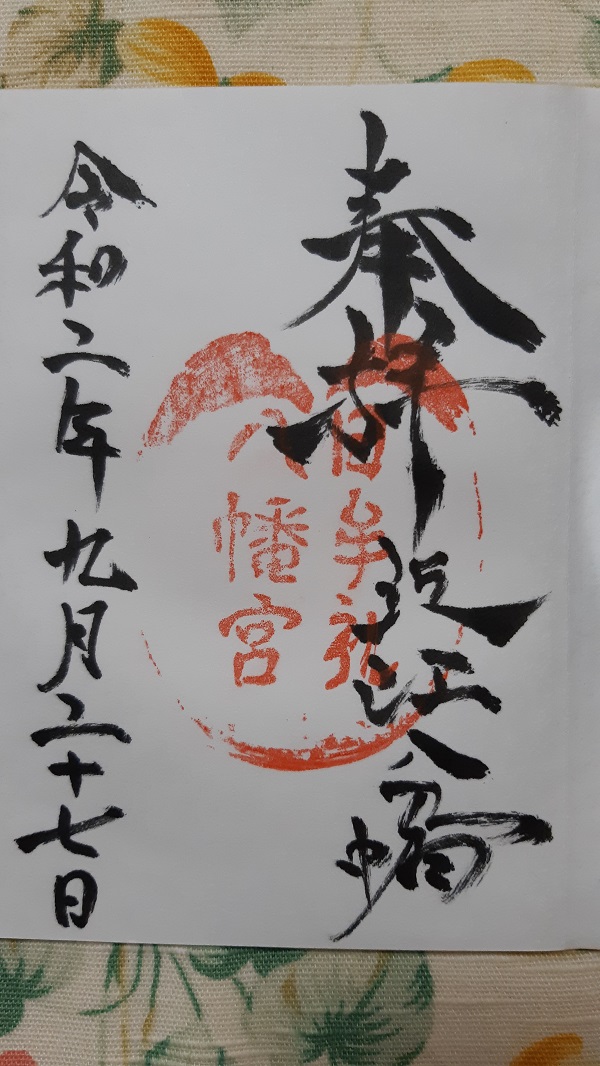 奉拝 近江八幡
日牟礼
八幡宮
令和二年九月二十七日